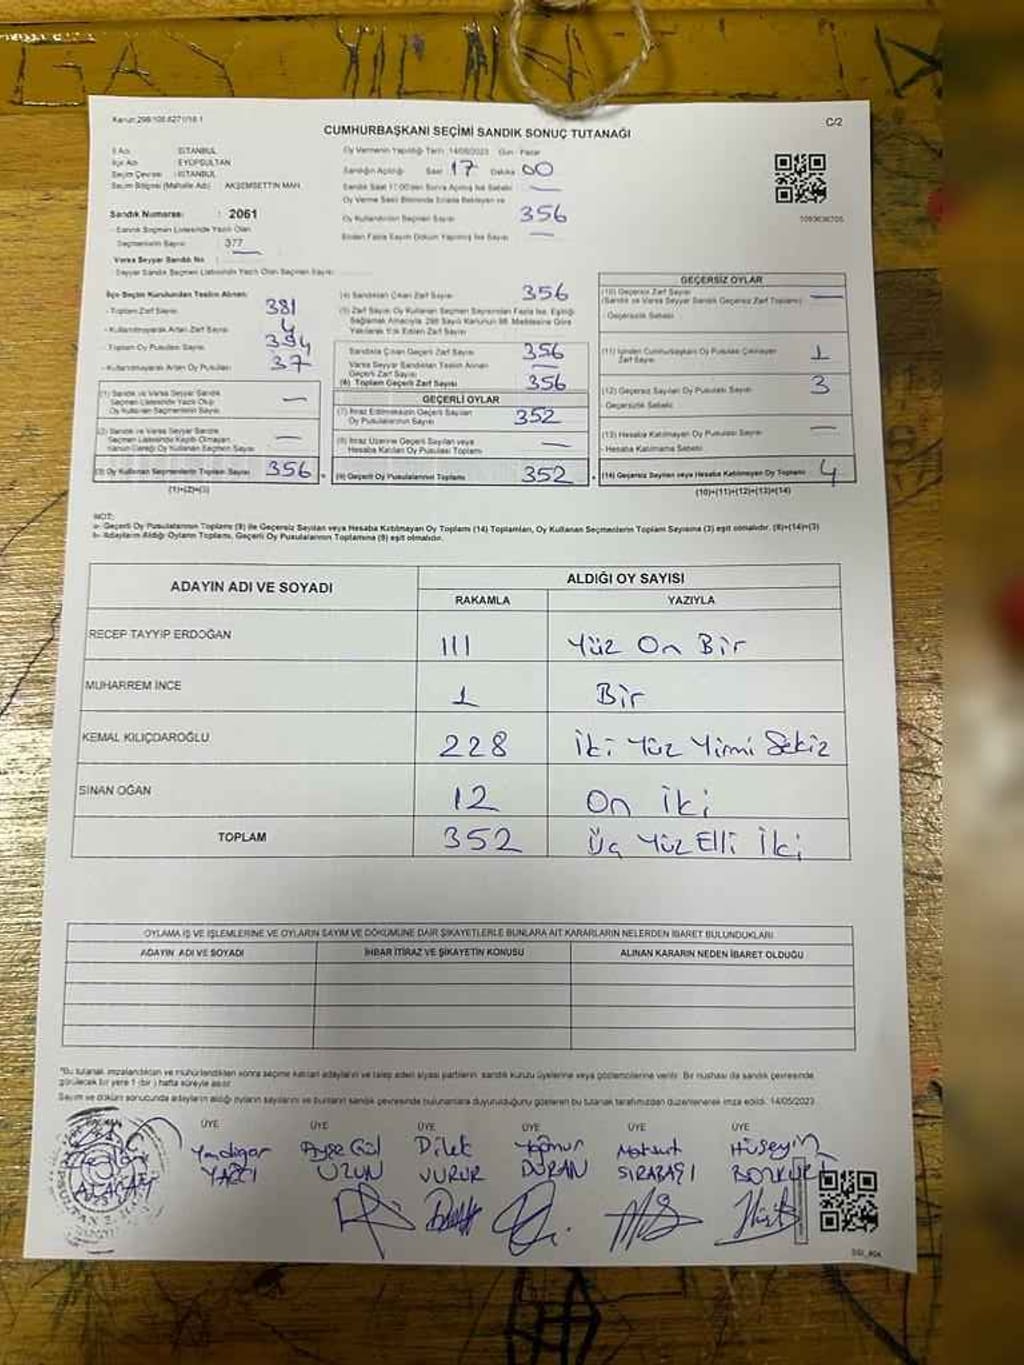 Kanun:298/105.6271/18.1
C/2
CUMHURBAŞKANI SEÇİMİ SANDIK SONUÇ TUTANAĞI
İl Adı : İSTANBUL
İlçe Adı : EYÜPSULTAN
Seçim Çevresi : İSTANBUL
Seçim Bölgesi (Mahalle Adı) : AKŞEMSETTİN MAH.
Sandık Numarası : 2061
- Sandık Seçmen Listesinde Yazılı Olan
Seçmenlerin Sayısı : 377
Varsa Seyyar Sandık No :
- Seyyar Sandık Seçmen Listesinde Yazılı Olan Seçmen Sayısı :
Oy Vermenin Yapıldığı Tarih : 14/05/2023 Gün : Pazar
Sandığın Açıldığı Saat 17 Dakika 00
Sandık Saat 17:00'den Sonra Açılmış İse Sebebi —
Oy Verme Saati Bitiminde Sırada Bekleyen ve
Oy Kullandırılan Seçmen Sayısı 356
Birden Fazla Sayım Döküm Yapılmış İse Sayısı —
İlçe Seçim Kurulundan Teslim Alınan:
- Toplam Zarf Sayısı: 381
- Kullanılmayarak Artan Zarf Sayısı: 4
- Toplam Oy Pusulası Sayısı: 394
- Kullanılmayarak Artan Oy Pusulası: 37
(1) Sandık ve Varsa Seyyar Sandık
Seçmen Listesinde Yazılı Olup
Oy Kullanan Seçmenlerin Sayısı —
(2) Sandık ve Varsa Seyyar Sandık
Seçmen Listesinde Kayıtlı Olmayan
Kanun Gereği Oy Kullanan Seçmen Sayısı —
(3) Oy Kullanan Seçmenlerin Toplam Sayısı 356
(1)+(2)=(3)
(4) Sandıktan Çıkan Zarf Sayısı 356
(5) Zarf Sayısı Oy Kullanan Seçmen Sayısından Fazla İse, Eşitliği
Sağlamak Amacıyla, 298 Sayılı Kanunun 98. Maddesine Göre
Yakılarak Yok Edilen Zarf Sayısı
Sandıkta Çıkan Geçerli Zarf Sayısı 356
Varsa Seyyar Sandıktan Teslim Alınan
Geçerli Zarf Sayısı —
(6) Toplam Geçerli Zarf Sayısı 356
GEÇERLİ OYLAR
(7) İtiraz Edilmeksizin Geçerli Sayılan
Oy Pusulalarının Sayısı 352
(8) İtiraz Üzerine Geçerli Sayılan veya
Hesaba Katılan Oy Pusulası Toplamı —
(9) Geçerli Oy Pusulalarının Toplamı 352
1093636705
GEÇERSİZ OYLAR
(10) Geçersiz Zarf Sayısı
(Sandık ve Varsa Seyyar Sandık Geçersiz Zarf Toplamı) —
- Geçersizlik Sebebi:
(11) İçinden Cumhurbaşkanı Oy Pusulası Çıkmayan
Zarf Sayısı 1
(12) Geçersiz Sayılan Oy Pusulası Sayısı 3
- Geçersizlik Sebebi:
(13) Hesaba Katılmayan Oy Pusulası Sayısı —
- Hesaba Katılmama Sebebi:
(14) Geçersiz Sayılan veya Hesaba Katılmayan Oy Toplamı 4
(10)+(11)+(12)+(13)=(14)
NOT:
a- Geçerli Oy Pusulalarının Toplamı (9) ile Geçersiz Sayılan veya Hesaba Katılmayan Oy Toplamı (14) Toplamları, Oy Kullanan Seçmenlerin Toplam Sayısına (3) eşit olmalıdır. (9)+(14)=(3)
b- Adayların Aldığı Oyların Toplamı, Geçerli Oy Pusulalarının Toplamına (9) eşit olmalıdır.
ADAYIN ADI VE SOYADI
ALDIĞI OY SAYISI
RAKAMLA YAZIYLA
RECEP TAYYİP ERDOĞAN 111 Yüz On Bir
MUHARREM İNCE 1 Bir
KEMAL KILIÇDAROĞLU 228 İki Yüz Yirmi Sekiz
SİNAN OĞAN 12 On İki
TOPLAM 352 Üç Yüz Elli İki
OYLAMA İŞ VE İŞLEMLERİNE VE OYLARIN SAYIM VE DÖKÜMÜNE DAİR ŞİKAYETLERLE BUNLARA AİT KARARLARIN NELERDEN İBARET BULUNDUKLARI
ADAYIN ADI VE SOYADI İHBAR İTİRAZ VE ŞİKAYETİN KONUSU ALINAN KARARIN NEDEN İBARET OLDUĞU
"Bu tutanak imzalandıktan ve mühürlendikten sonra seçime katılan adayların ve talep eden siyasi partilerin sandık kurulu üyelerine veya gözlemcilerine verilir. Bir nüshası da sandık çevresinde
görülecek bir yere 1 (bir) hafta süreyle asılır.
Sayım ve döküm sonucunda adayların aldığı oyların sayılarını ve bunların sandık çevresinde bulunanlara duyurulduğunu gösteren bu tutanak tarafımızdan düzenlenerek imza edildi. 14/05/2023
ÜYE ÜYE ÜYE ÜYE ÜYE ÜYE
Yadigar Ayşe Gül Dilek Yağmur Maksut Hüseyin
YAZCI UZUN VURUR DURAN SIRABAŞI BOZKURT